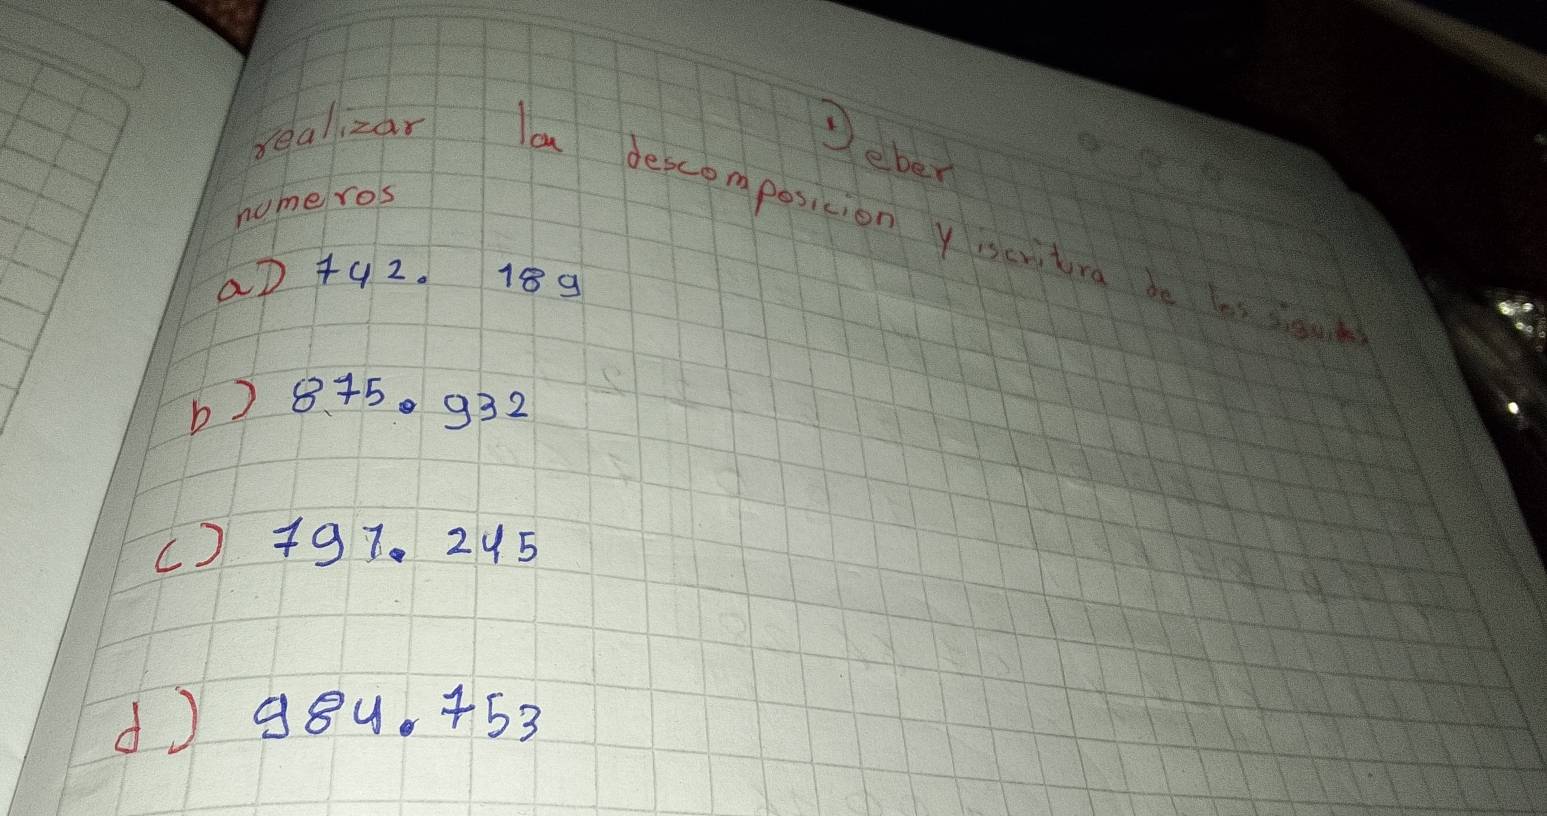 Deber
realizar la descomposicion y iscritura de los siguites
numeros
a) 742. 189
b) 875. 932
c) 797. 245
d) 984. 753